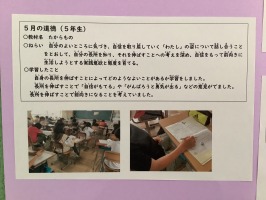 ５月の道徳（５年生）
○教材名　たからもの
○ねらい　自分のよいところに気づき、自信を取り戻していく「わたし」の姿について話し合うこと
をとおして、自分の長所を知り、それを伸ばすことへの考えを深め、自信をもって前向きに
生活しようとする実践意欲と態度を育てる。
○学習したこと
自身の長所を伸ばすことによってどのようなよいことがあるか学習をしました。
長所を伸ばすことで「自信がもてる」や「がんばろうと勇気が出る」などの意見がでました。
長所を伸ばすことで前向きになることを考えていました。